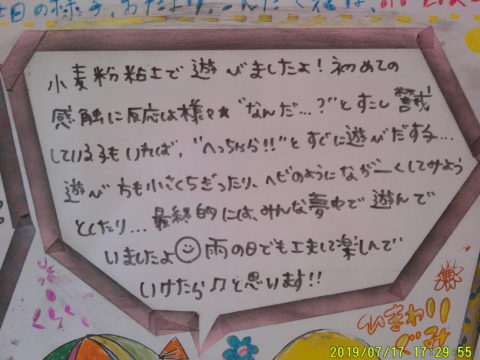 日の様子、おたより、こんだて表は、
小麦粉粘土で遊びましたよ!初めての
感触に反応は様々★"なんだ…?"とすこし警戒
している子もいれば、"へっちゃら!!"とすぐに遊びだす子…
遊び方も小さくちぎったり、ヘビのようになが〜くしてみよう
としたり…最終的には、みんな夢中で遊んで
いましたよ☺雨の日でも工夫して楽しんで
いけたら♫と思います!!
ひまわり
ぐみ
2019/07/17 17:29:55